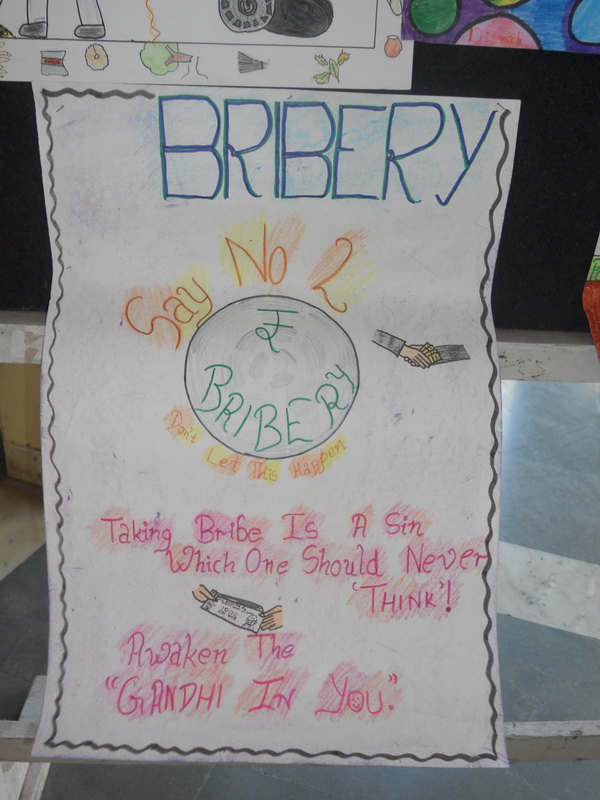 Dismah
BRIBERY
Say No 2
₹
BRIBERY
Don't Let This Happen
Taking Bribe Is A Sin
Which One Should Never
'THINK'!
Awaken The
"GANDHI IN YOU."